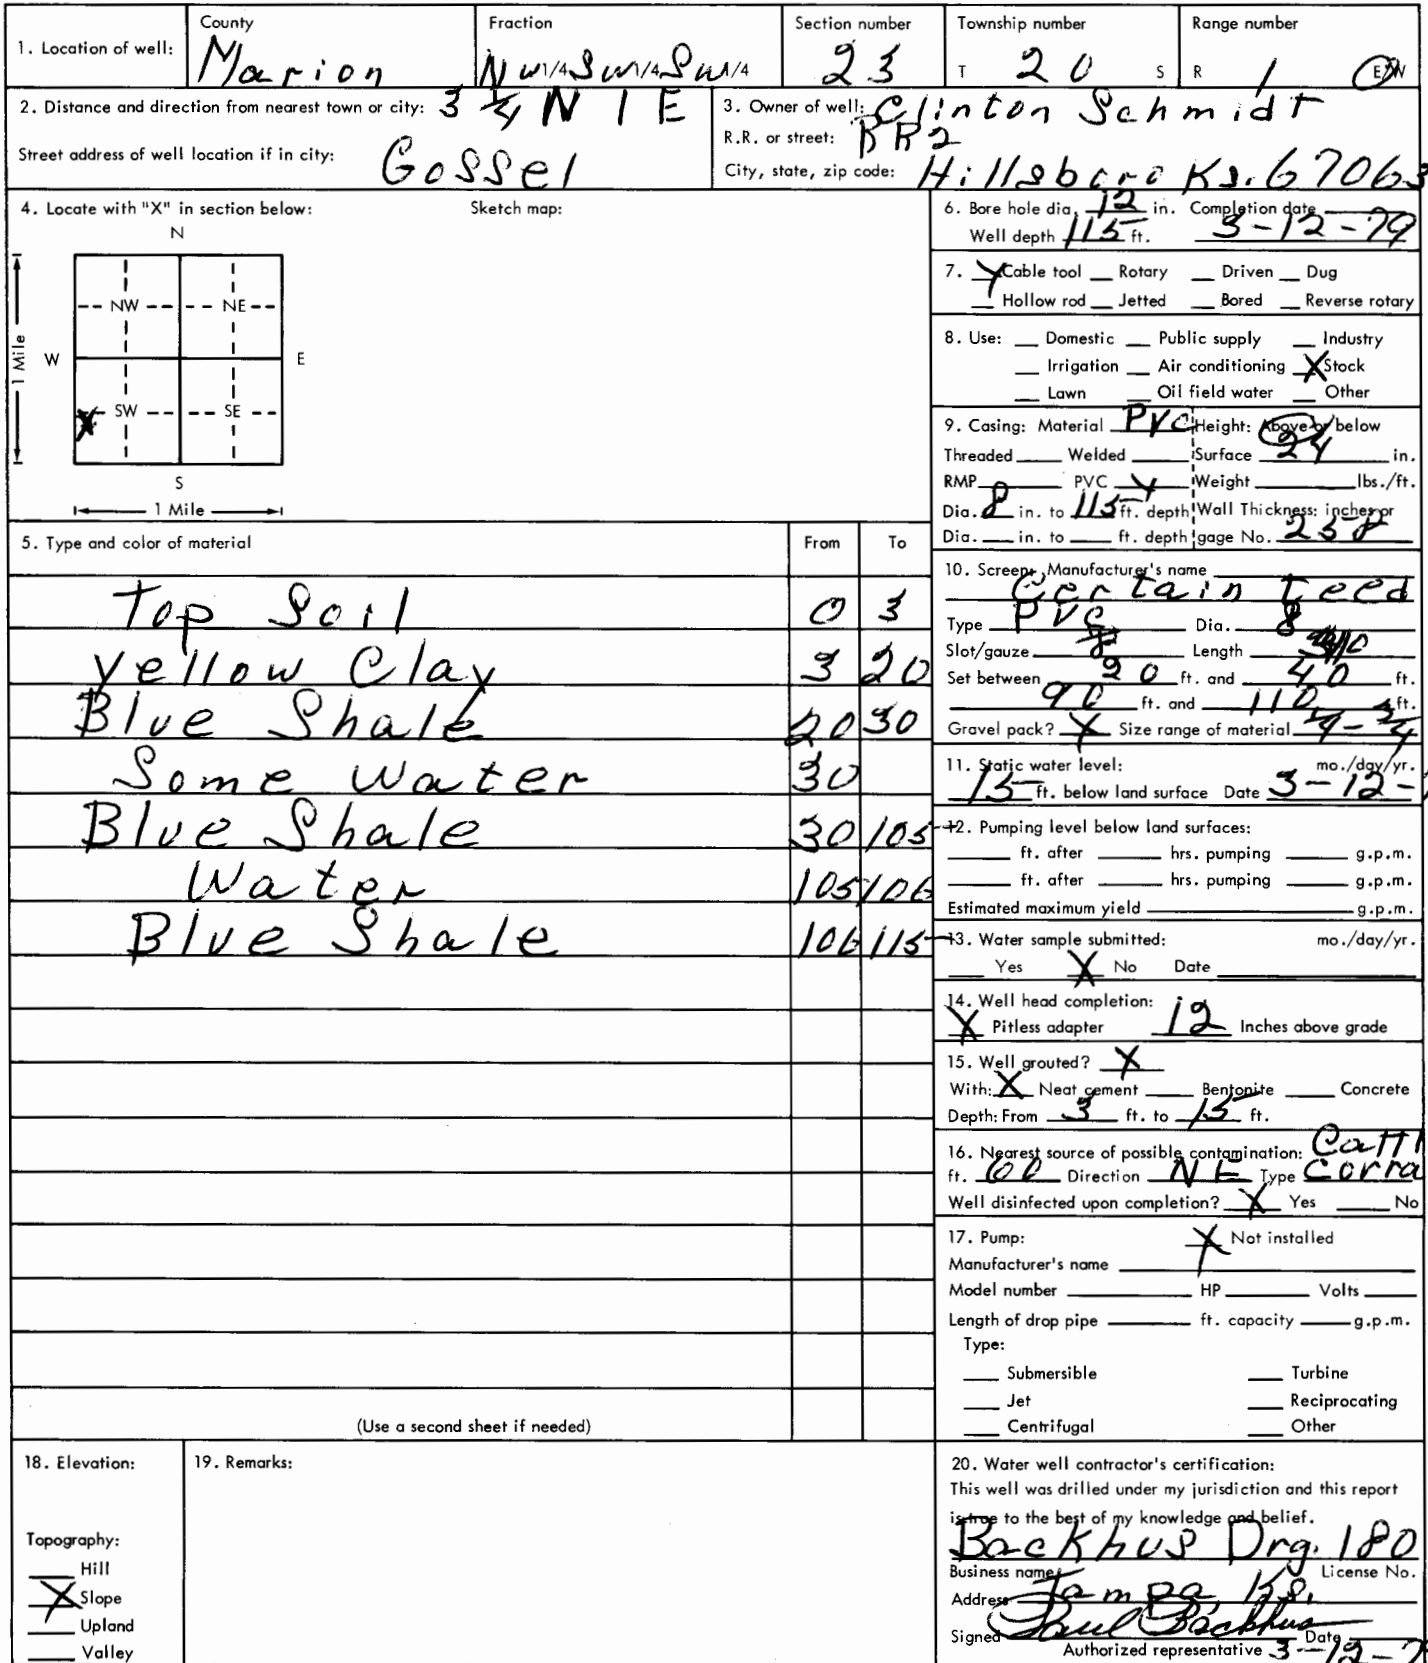 1. Location of well: County Marion Fraction NW1/4 SW1/4 SW1/4 Section number 23 Township number T 20 S Range number R 1 E/W
2. Distance and direction from nearest town or city: 3 1/4 N 1 E
Street address of well location if in city: Gossel
3. Owner of well: Clinton Schmidt
R.R. or street: RR2
City, state, zip code: Hillsboro Ks. 67063
4. Locate with "X" in section below: Sketch map:
N
NW NE
W E
1 Mile
X SW SE
S
1 Mile
5. Type and color of material From To
Top Soil 0 3
Yellow Clay 3 20
Blue Shale 20 30
Some Water 30
Blue Shale 30 105
Water 105 106
Blue Shale 106 115
(Use a second sheet if needed)
6. Bore hole dia. 12 in. Completion date
Well depth 115 ft. 3-12-79
7. Cable tool Rotary Driven Dug
Hollow rod Jetted Bored Reverse rotary
8. Use: Domestic Public supply Industry
Irrigation Air conditioning X Stock
Lawn Oil field water Other
9. Casing: Material PVC Height: Above or below
Threaded Welded Surface 24 in.
RMP PVC Weight lbs./ft.
Dia. 8 in. to 115 ft. depth Wall Thickness: inches or
Dia. in. to ft. depth gage No. 258
10. Screen: Manufacturer's name
Certain teed
Type PVC Dia. 8
Slot/gauze Length
Set between 20 ft. and 40 ft.
90 ft. and 110 ft.
Gravel pack? X Size range of material
11. Static water level: mo./day/yr.
15 ft. below land surface Date 3-12-
12. Pumping level below land surfaces:
ft. after hrs. pumping g.p.m.
ft. after hrs. pumping g.p.m.
Estimated maximum yield g.p.m.
13. Water sample submitted: mo./day/yr.
Yes X No Date
14. Well head completion:
X Pitless adapter 12 Inches above grade
15. Well grouted? X
With: X Neat cement Bentonite Concrete
Depth: From 3 ft. to 15 ft.
16. Nearest source of possible contamination: Cattl
ft. 60 Direction NE Type Corra
Well disinfected upon completion? X Yes No
17. Pump: X Not installed
Manufacturer's name
Model number HP Volts
Length of drop pipe ft. capacity g.p.m.
Type:
Submersible Turbine
Jet Reciprocating
Centrifugal Other
18. Elevation:
Topography:
Hill
X Slope
Upland
Valley
19. Remarks:
20. Water well contractor's certification:
This well was drilled under my jurisdiction and this report
is true to the best of my knowledge and belief.
Backhus Drg. 180
Business name License No.
Address Tampa, Ks.
Signed Paul Backhus Date
Authorized representative 3-12-7